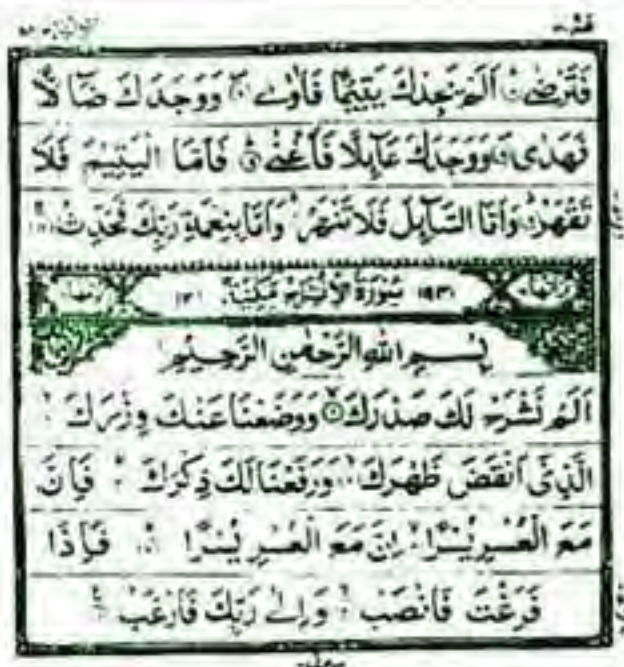 فَتَرْضٰى اَلَمْ يَجِدْكَ يَتِيْمًا فَاٰوٰى وَوَجَدَكَ ضَآلًّا
فَهَدٰى وَوَجَدَكَ عَآئِلًا فَاَغْنٰى فَاَمَّا الْيَتِيْمَ فَلَا
تَقْهَرْ وَاَمَّا السَّآئِلَ فَلَا تَنْهَرْ وَاَمَّا بِنِعْمَةِ رَبِّكَ فَحَدِّثْ
سُوْرَةُ الْاِنْشِرَاحِ مَكِّيَّةٌ
بِسْمِ اللهِ الرَّحْمٰنِ الرَّحِيْمِ
اَلَمْ نَشْرَحْ لَكَ صَدْرَكَ وَوَضَعْنَا عَنْكَ وِزْرَكَ
الَّذِىْٓ اَنْقَضَ ظَهْرَكَ وَرَفَعْنَا لَكَ ذِكْرَكَ فَاِنَّ
مَعَ الْعُسْرِ يُسْرًا اِنَّ مَعَ الْعُسْرِ يُسْرًا فَاِذَا
فَرَغْتَ فَانْصَبْ وَاِلٰى رَبِّكَ فَارْغَبْ